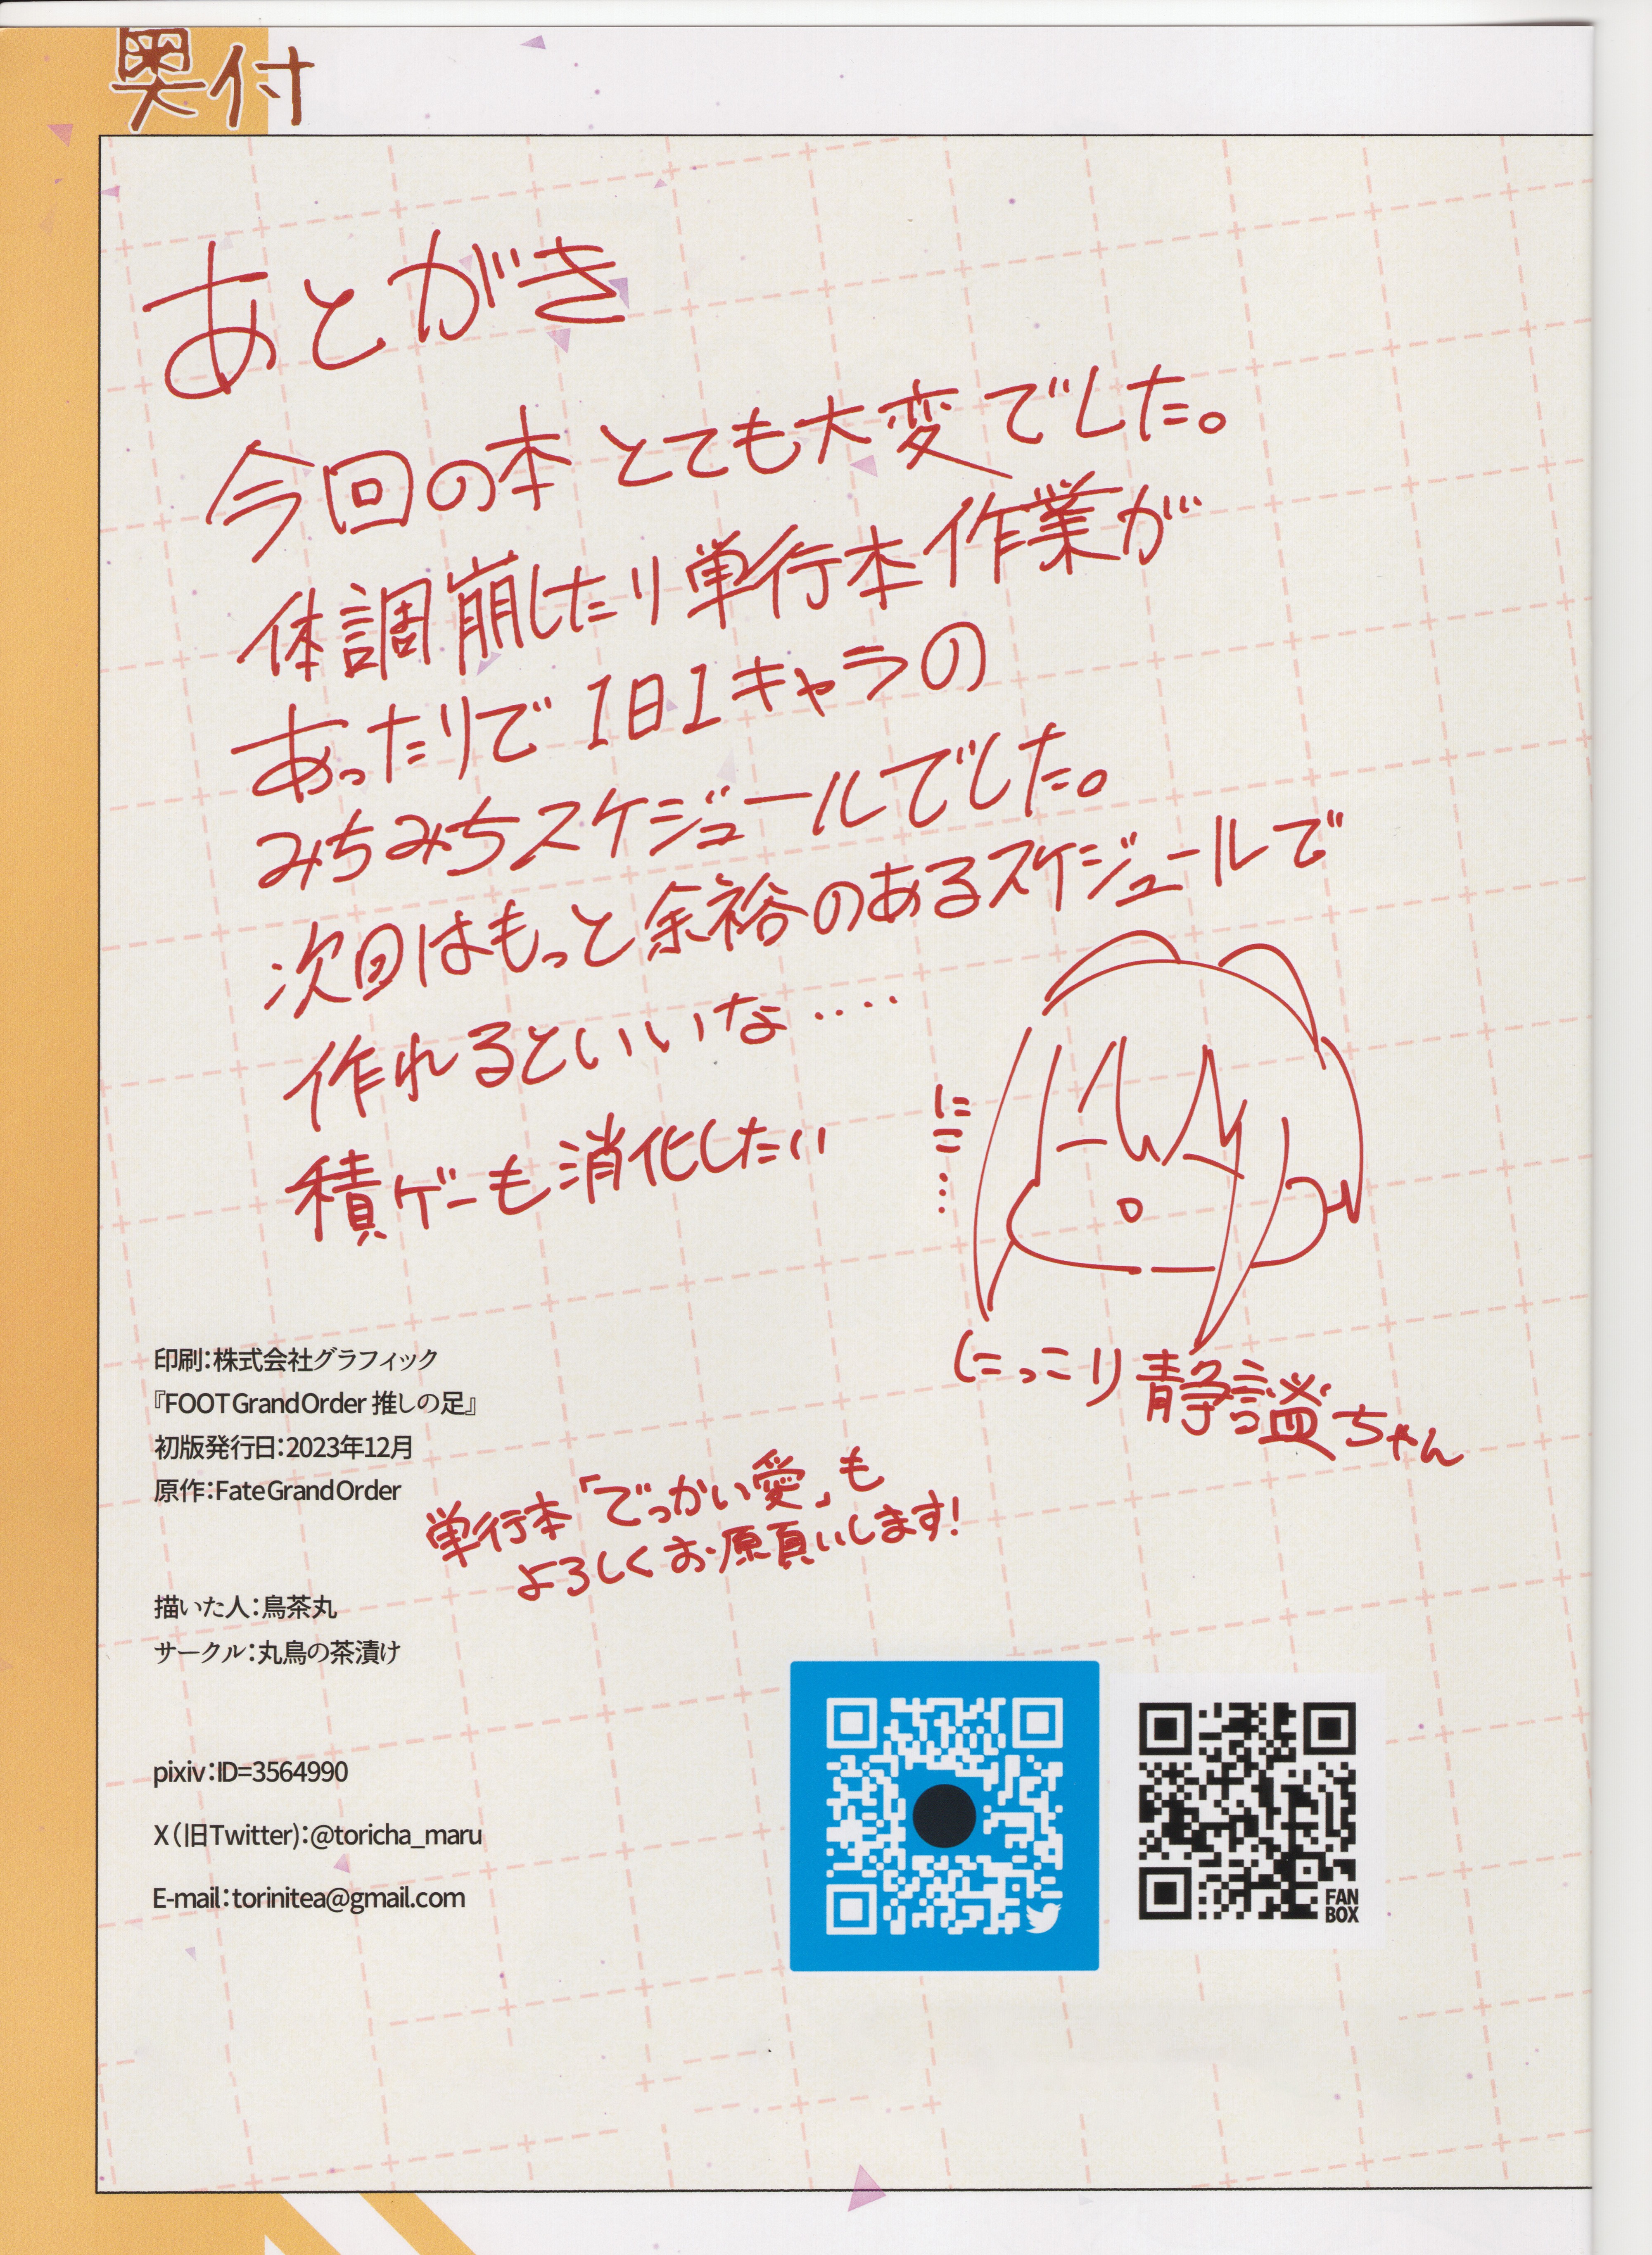 奥付
あとがき
今回の本とても大変でした。
体調崩したり単行本作業が
あったりで1日1キャラの
みちみちスケジュールでした。
次回はもっと余裕のあるスケジュールで
作れるといいな‥‥
積ゲーも消化したい
にこ…
(にっこり静謐ちゃん
印刷：株式会社グラフィック
『FOOT Grand Order 推しの足』
初版発行日：2023年12月
原作：Fate Grand Order
単行本「でっかい愛」も
よろしくお願いします!
描いた人：鳥茶丸
サークル：丸鳥の茶漬け
pixiv：ID=3564990
X（旧Twitter)：@toricha_maru
E-mail：torinitea@gmail.com
FAN
BOX